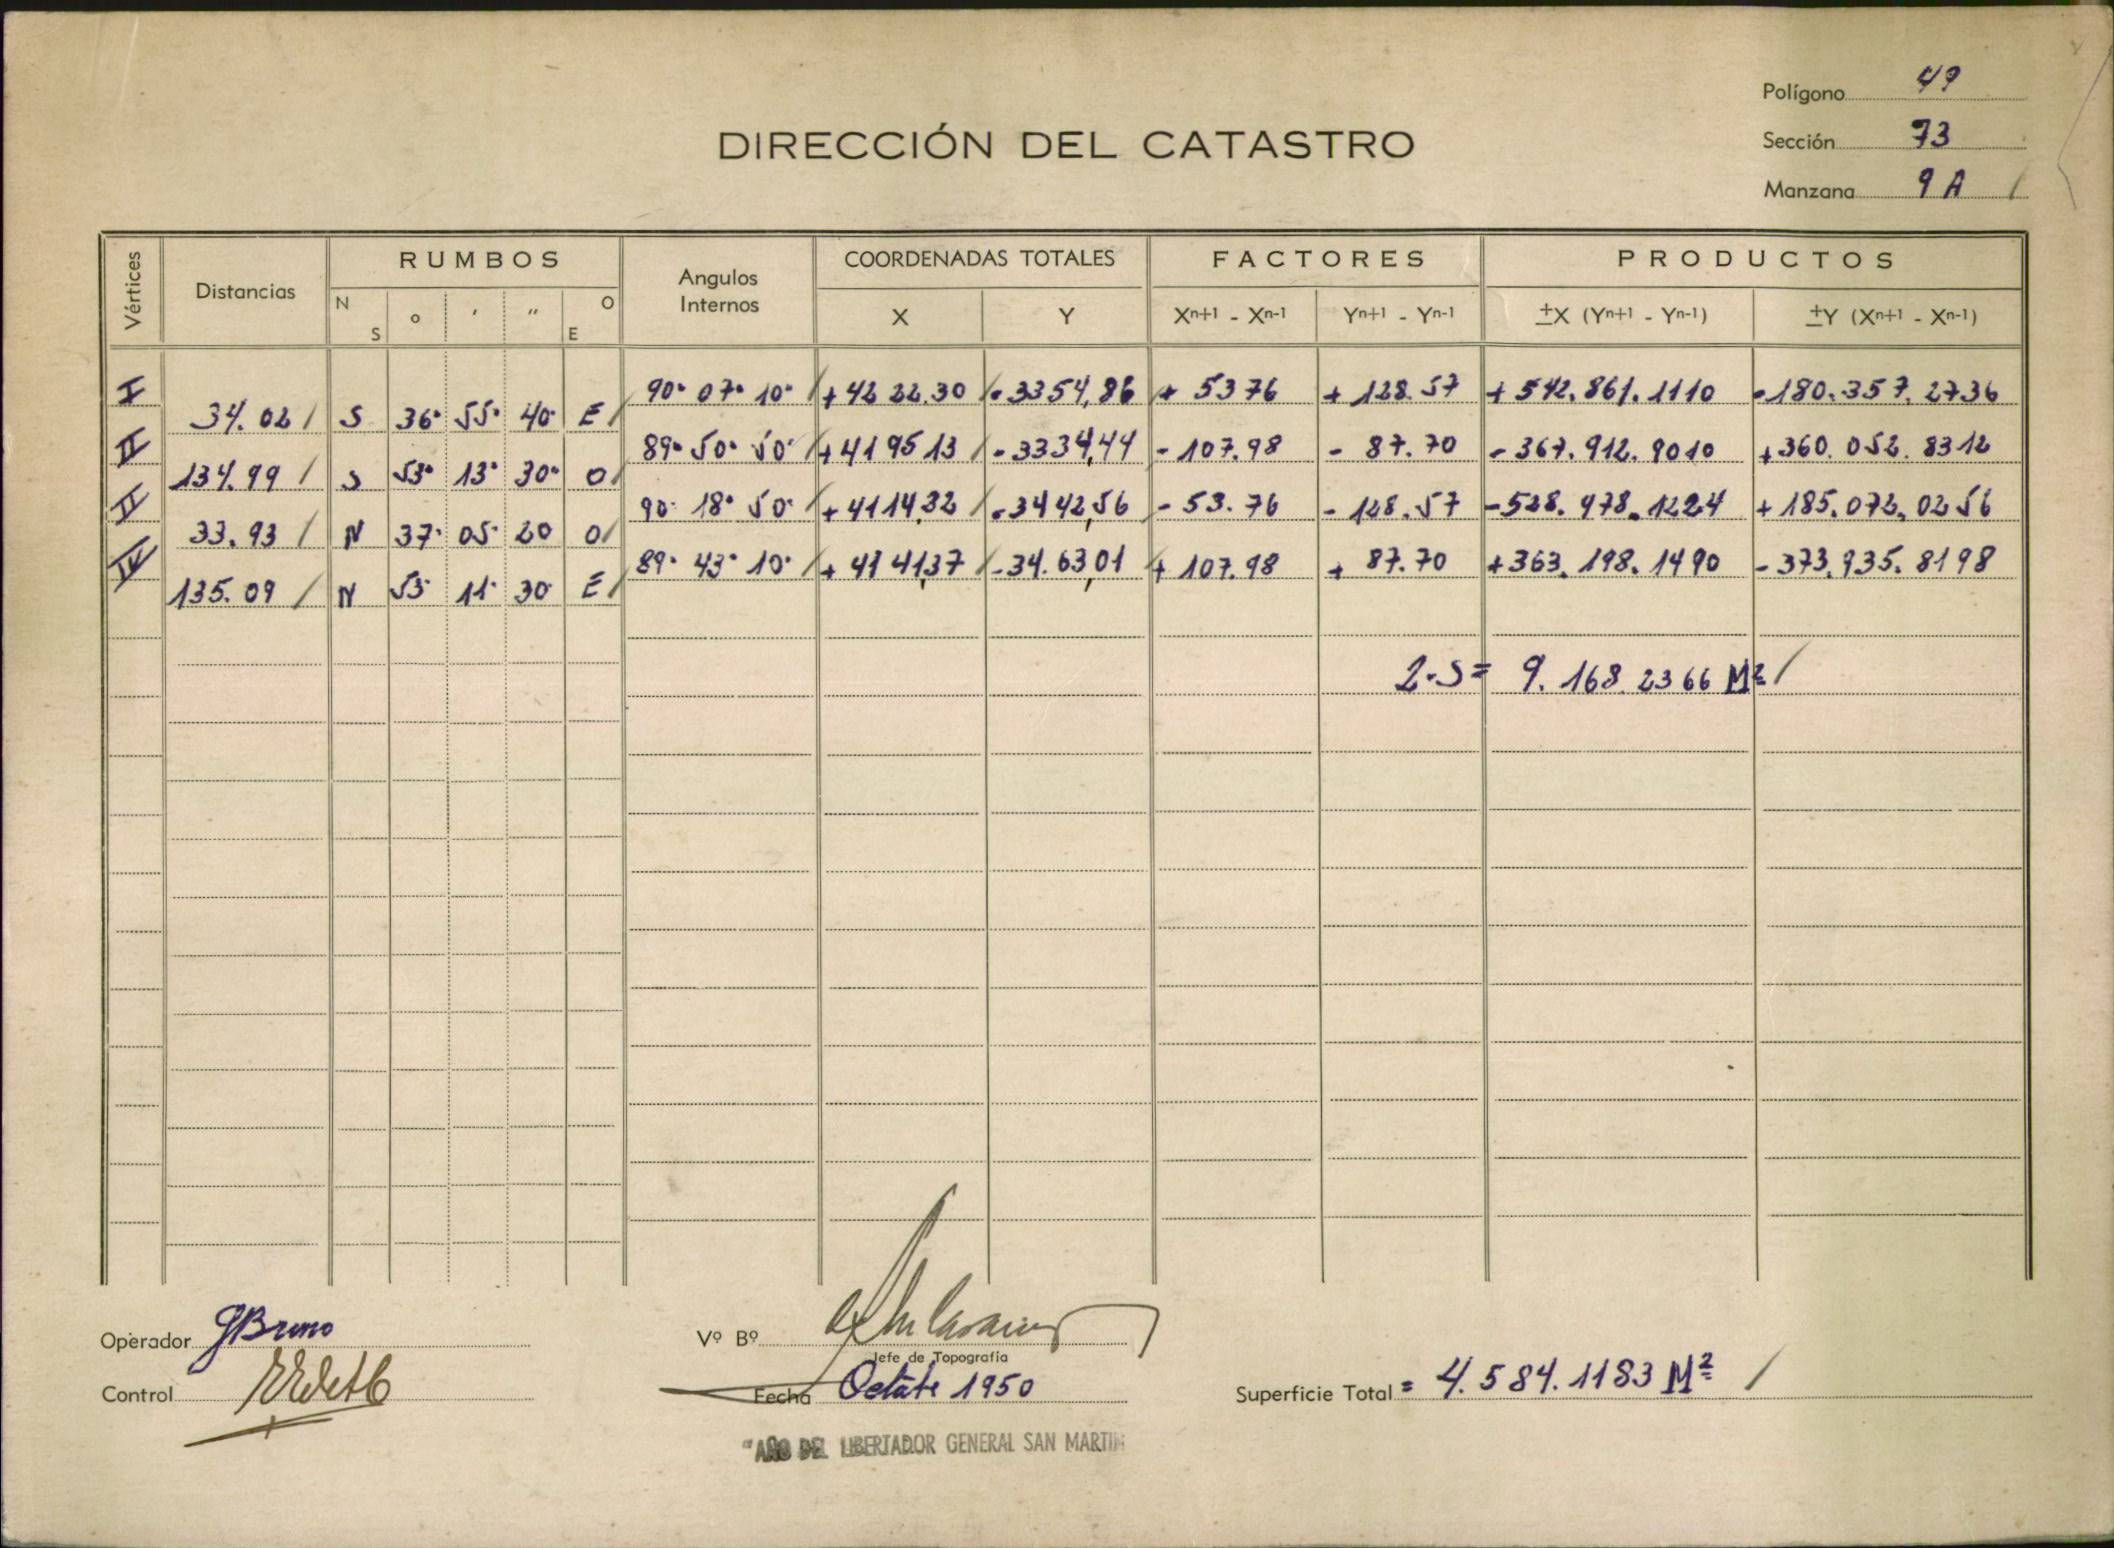 Polígono 49
Sección 73
Manzana 9 A
DIRECCIÓN DEL CATASTRO
Vértices Distancias RUMBOS Angulos Internos COORDENADAS TOTALES FACTORES PRODUCTOS
N S ° ′ ″ O E X Y Xn+1 - Xn-1 Yn+1 - Yn-1 ±X (Yn+1 - Yn-1) ±Y (Xn+1 - Xn-1)
I 90° 07° 10° +4222.30 -3354,86 + 5376 + 128.57 + 542.861.1110 -180.357.2736
34.02 S 36° 55° 40° E
II 89° 50° 50° +419513 -3334,44 - 107.98 - 87.70 - 367.912.9010 +360.052.8312
134.99 S 53° 13° 30° O
II 90° 18° 50° +4114,32 -3442,56 - 53.76 - 128.57 -528.978.1224 +185.072.0256
33.93 N 37° 05° 20 O
IV 89° 43° 10° + 4141,37 -34.63,01 + 107.98 + 87.70 +363.198.1490 - 373.935.8198
135.09 N 53° 11° 30° E
2.S= 9.168.2366 M²
Operador GBruno
Vº Bº
Jefe de Topografía
Control
Fecha Octbre 1950
Superficie Total = 4.584.1183 M²
"AÑO DEL LIBERTADOR GENERAL SAN MARTIN